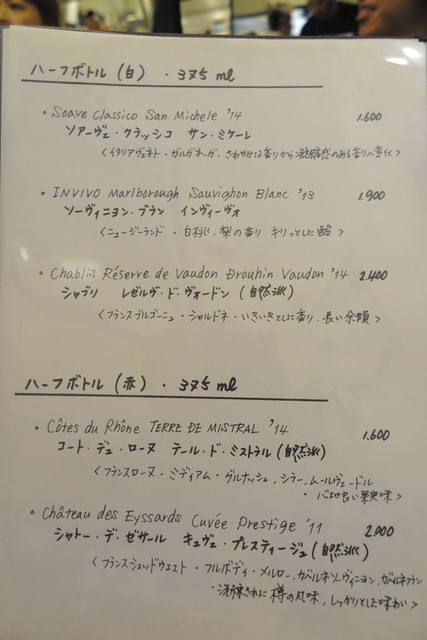 ハーフボトル (白) ・ 375 ml
・ Soave Classico San Michele '14 1.600
ソアーヴェ・クラッシコ サン・ミケーレ
<イタリアヴェネト・ガルガネーガ、さわやかな香りから凝縮感のある香りへ変化>
・ INVIVO Marlborough Sauvighon Blanc '13 1.900
ソーヴィニヨン・ブラン インヴィーヴォ
<ニュージーランド・白桃、梨の香り キリッとした酸>
・ Chablis Réserve de Vaudon Drouhin.Vaudon '14 2.400
シャブリ レゼルヴ・ド・ヴォードン (自然派)
<フランスブルゴーニュ・シャルドネ・いきいきとした香り、長い余韻>
ハーフボトル (赤) ・ 375 ml
・ Côtes du Rhône TERRE DE MISTRAL '14 1.600
コート・デュ・ローヌ テール・ド・ミストラル (自然派)
<フランスローヌ・ミディアム・グルナッシュ、シラー、ムールヴェードル
・心地良い果実味>
・ Château des Eyssards Cuvée Prestige '11 2.000
シャトー・デ・ゼサール キュヴェ・プレスティージュ (自然派)
<フランスシュッドウエスト・フルボディ・メルロー、カベルネソーヴィニヨン、カベルネフラン
・洗練された樽の風味、しっかりとした味わい>